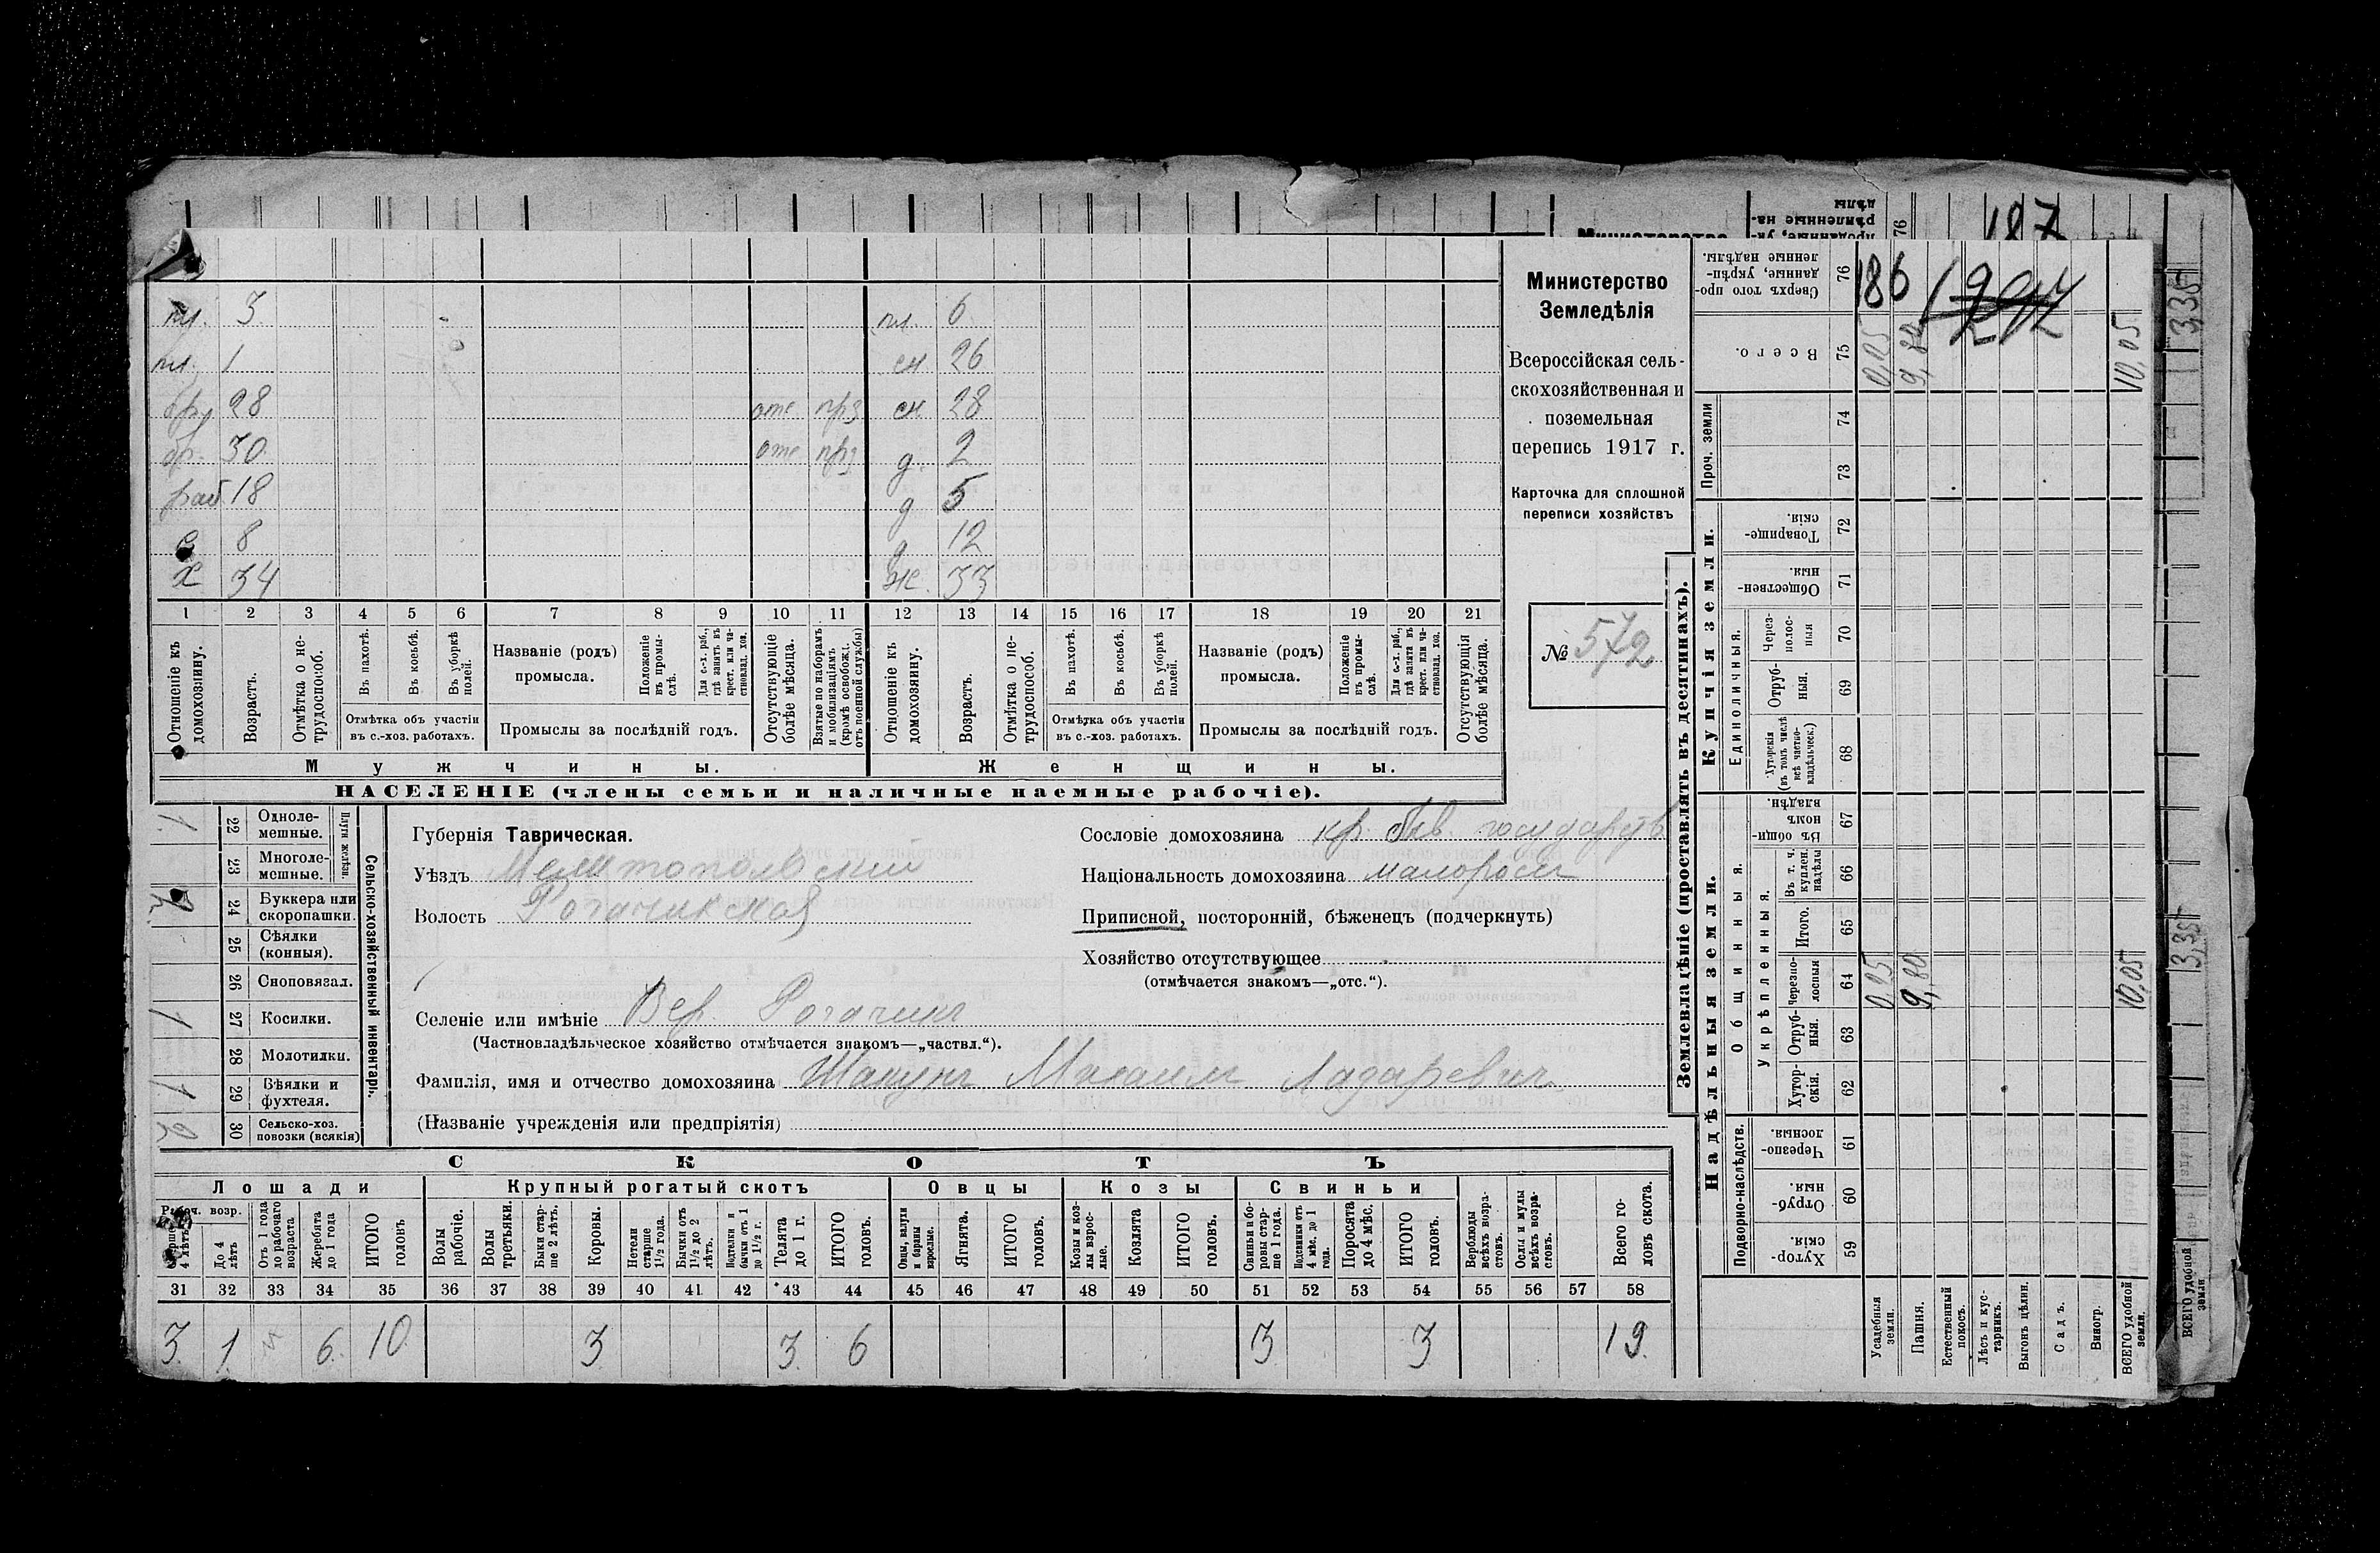 пл. 3 пл. 6
пл. 1 сн 26
бр 28 отс прз сн. 28
бр. 30 отс прз д. 2
раб 18 д 5
с 8 д 12
х 34 ж. 33
1 2 3 4 5 6 7 8 9 10 11 12 13 14 15 16 17 18 19 20 21
Отношеніе къ домохозяину.
Возрастъ.
Отмѣтка о не-трудоспособ.
Въ пахотѣ.
Въ косьбѣ.
Въ уборкѣ полей.
Отмѣтка объ участіи
въ с.-хоз. работахъ.
Названіе (родъ)
промысла.
Положеніе въ промы-слѣ.
Для с.-х. раб., гдѣ занятъ въ крест. или ча-стновлад. хоз.
Промыслы за послѣдній годъ.
Отсутствующіе болѣе мѣсяца.
Взятые по наборамъ и мобилизаціямъ (кромѣ освобожд. отъ военной службы)
Отношеніе къ домохозяину.
Возрастъ.
Отмѣтка о не-трудоспособ.
Въ пахотѣ.
Въ косьбѣ.
Въ уборкѣ полей.
Отмѣтка объ участіи
въ с.-хоз. работахъ.
Названіе (родъ)
промысла.
Положеніе въ промы-слѣ.
Для с.-х. раб., гдѣ занята въ крест. или ча-стновлад. хоз.
Промыслы за послѣдній годъ.
Отсутствующія болѣе мѣсяца.
Мужчины. Женщины.
НАСЕЛЕНІЕ (члены семьи и наличные наемные рабочіе).
Министерство
Земледѣлія
Всероссійская сель-
скохозяйственная и
поземельная
перепись 1917 г.
Карточка для сплошной
переписи хозяйствъ
№ 572
Сельско-хозяйственный инвентарь.
Плуги желѣзн.
1. 22 Одноле-мешные.
23 Многоле-мешные.
2. 24 Буккера или скоропашки.
25 Сѣялки (конныя).
26 Сноповязал.
1 27 Косилки.
28 Молотилки.
1 29 Вѣялки и фухтеля.
2 30 Сельско-хоз. повозки (всякія)
Губернія Таврическая.
Уѣздъ Мелитопольский
Волость Рогачикская
Селеніе или имѣніе Вер. Рогачикъ
(Частновладѣльческое хозяйство отмѣчается знакомъ—„частвл.“).
Фамилія, имя и отчество домохозяина Шакунъ Михаилъ Лазаревич
(Названіе учрежденія или предпріятія)
Сословіе домохозяина кр. быв. государств
Національность домохозяина малоросъ
Приписной, посторонній, бѣженецъ (подчеркнуть)
Хозяйство отсутствующее
(отмѣчается знакомъ—„отс.“).
СКОТЪ
Лошади Крупный рогатый скотъ Овцы Козы Свиньи
Рабоч. возр.
Старше 4 лѣтъ
До 4 лѣтъ
Отъ 1 года до рабочаго возраста
Жеребята до 1 года
ИТОГО головъ
Волы рабочіе.
Волы третьяки.
Быки стар-ше 2 лѣтъ.
Коровы.
Нетели старше 1½ года.
Бычки отъ 1½ до 2 лѣтъ.
Подтелки и бычки отъ 1 до 1½ г.
Телята до 1 г.
ИТОГО головъ.
Овцы, валухи и бараны взрослые.
Ягнята.
ИТОГО головъ.
Козы и коз-лы взрос-лые.
Козлята
ИТОГО головъ.
Свиньи и бо-ровы стар-ше 1 года.
Подсвинки отъ 4 мѣс. до 1 года.
Поросята до 4 мѣс.
ИТОГО головъ.
Верблюды всѣхъ возра-стовъ.
Ослы и мулы всѣхъ возра-стовъ.
Всего го-ловъ скота.
31 32 33 34 35 36 37 38 39 40 41 42 43 44 45 46 47 48 49 50 51 52 53 54 55 56 57 58
3 1 6 10 3 3 6 3 3 19
Землевладѣніе (проставлять въ десятинахъ).
186 187
Сверхъ того про-данные, укрѣп-ленные надѣлы. 76
Всего. 75 0,25 9,80 10,05
Проч. земли 74 73
Купчія земли.
Товарище-скія. 72
Обществен-ныя. 71
Единоличныя.
Через-полос-ныя 70
Отруб-ныя. 69
Хуторскія (въ томъ числѣ всѣ частно-владѣльческ.) 68
Надѣльныя земли.
Общинныя.
Въ общин-номъ владѣн. 67
Укрѣпленныя.
Въ т. ч. куплен. надѣлы 66
Итого. 65
Черезпо-лосныя 64 0,25 9,80 10,05
Отруб-ныя. 63
Хутор-скія. 62
Подворно-наслѣдств.
Черезпо-лосныя. 61
Отруб-ныя. 60
Хутор-скія. 59
Усадебная земля.
Пашня.
Естественный покосъ.
Лѣсъ и кус-тарникъ.
Выгонъ цѣлин.
Садъ.
Виногр.
ВСЕГО удобной земли.
3,35
3,35
ВСЕГО удобной земли